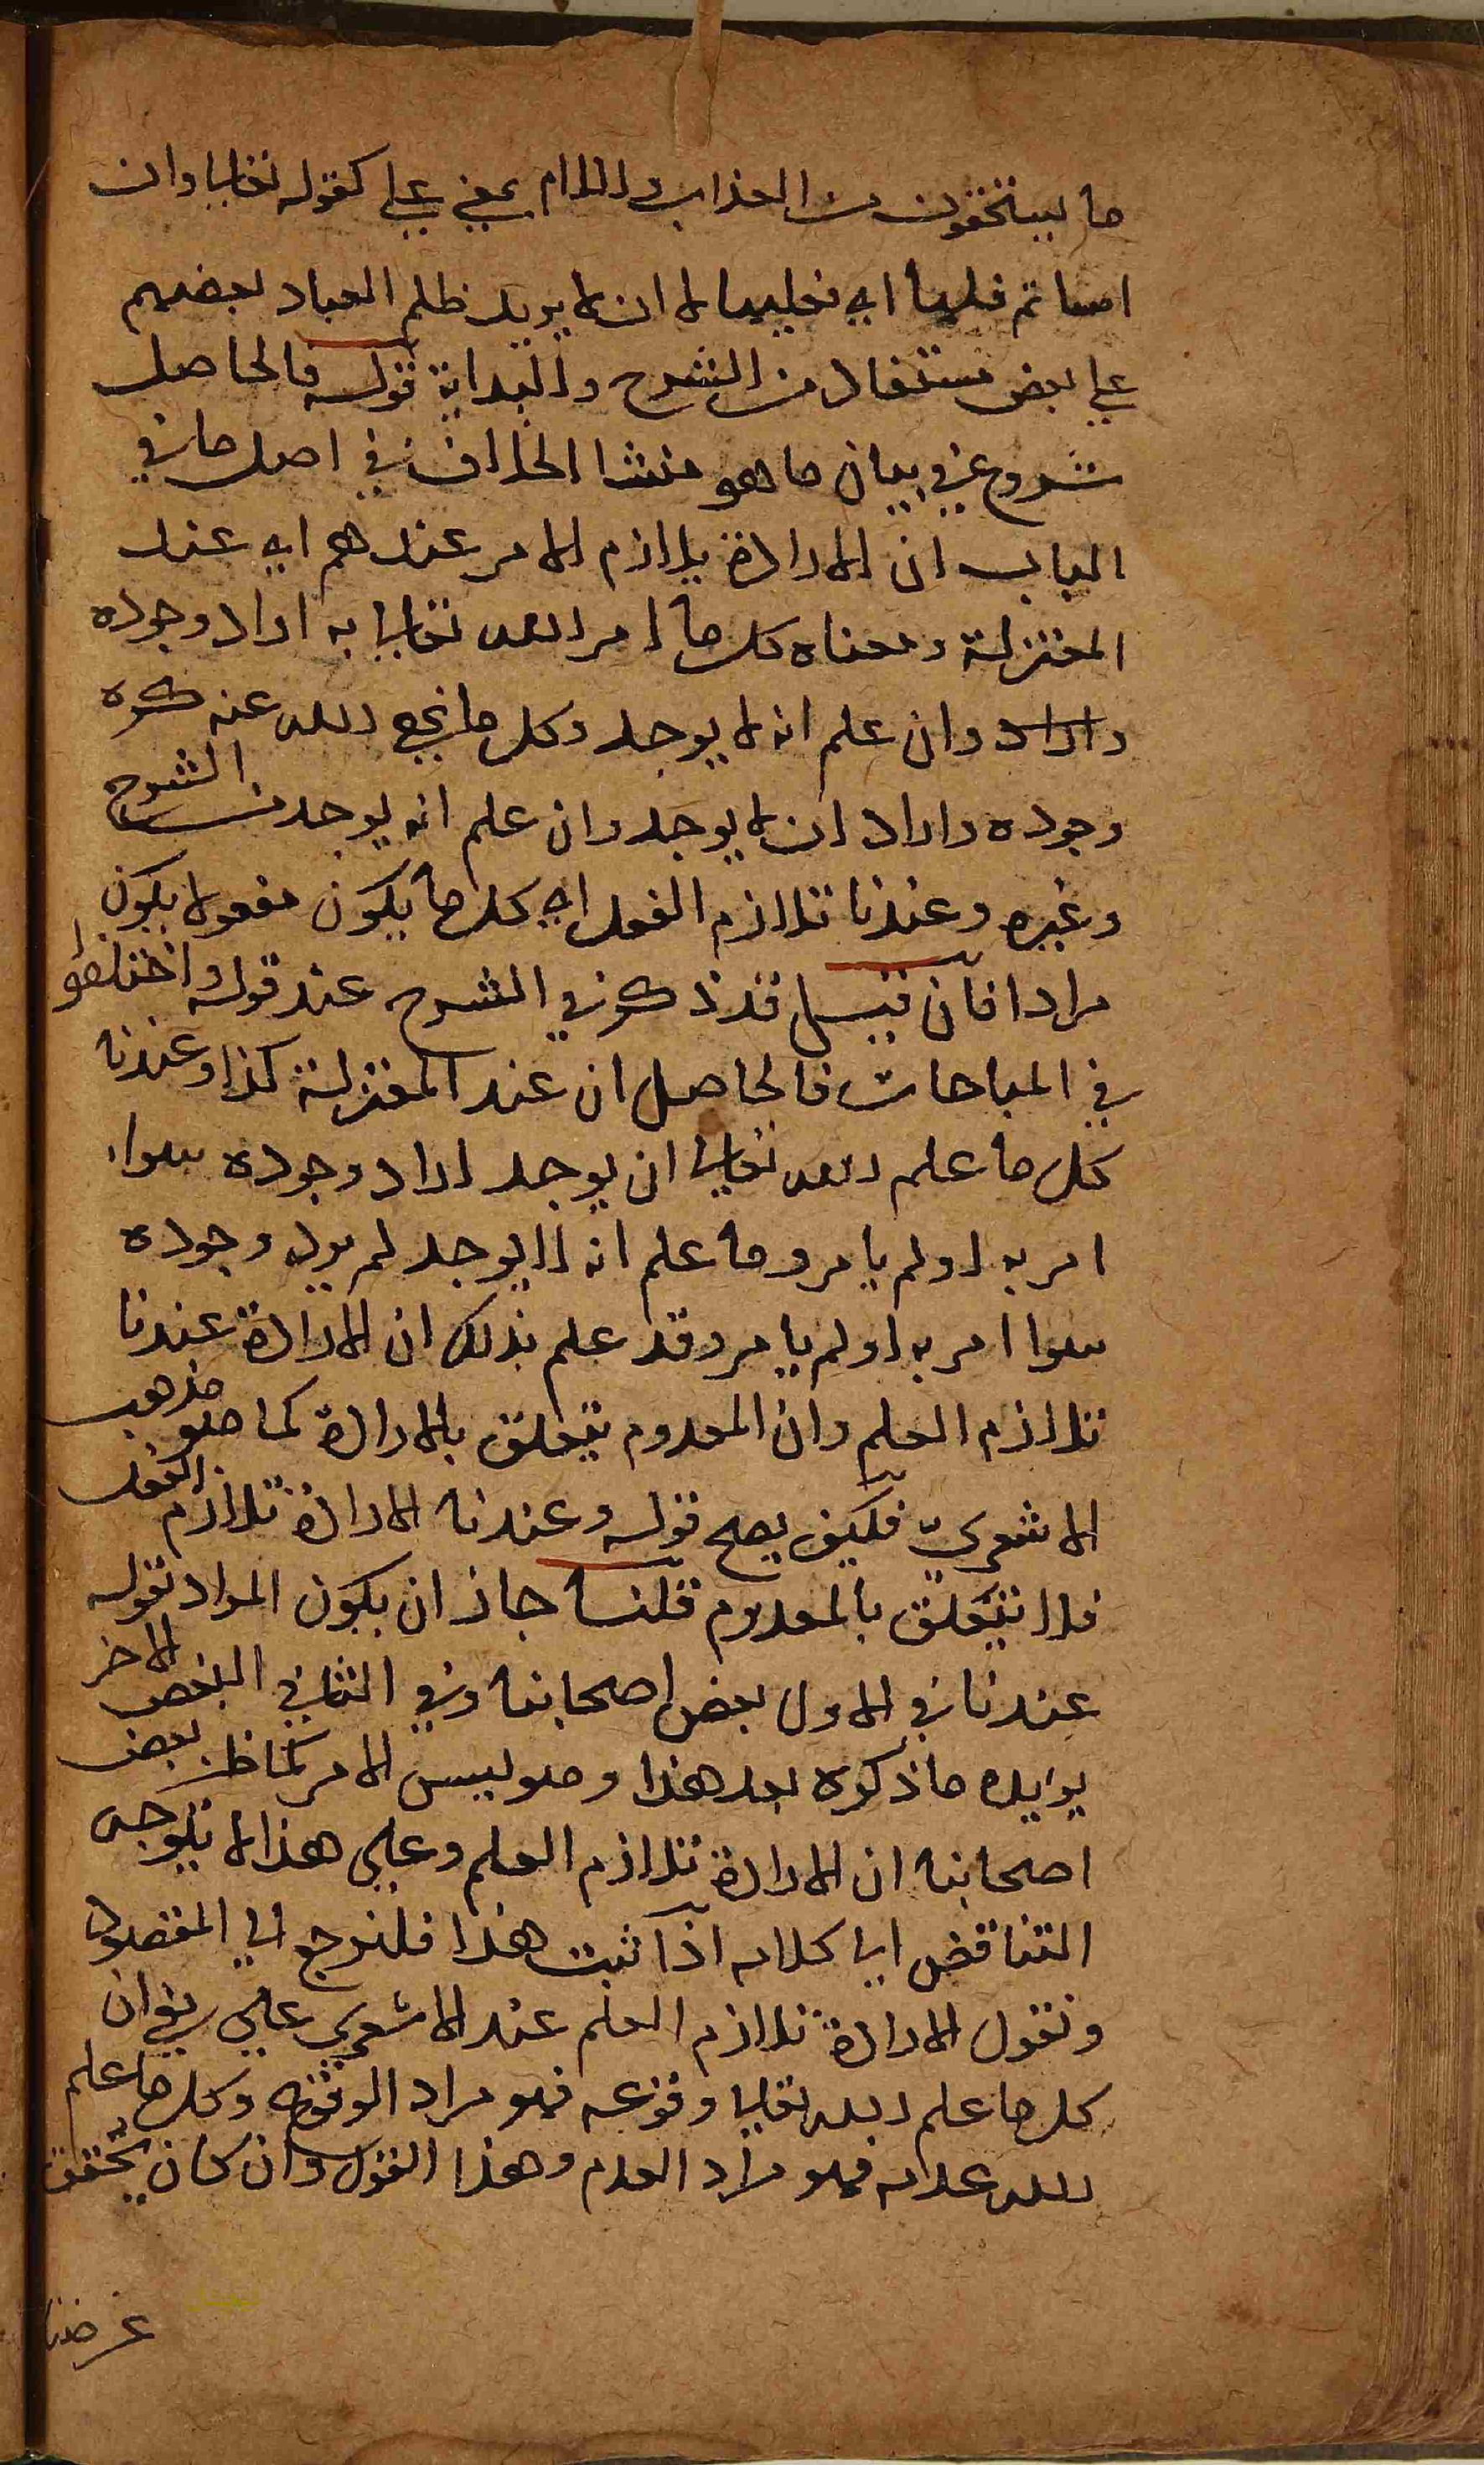 ما يستحقون من العذاب واللام بمعني علي كقوله تعالي وان
اساتم فلها اي فعليها لا ان لا يريد ظلم العباد لبعضهم
علي بعض مستفاد من الشرح والبداية قوله فالحاصل
شروع في بيان ما هو منشا الخلاف في اصل ما في
الباب ان الارادة يلازم الامر عندهم اي عند
المعتزلة ومعناه كل ما امر الله تعالي به اراد وجوده
واراد وان علم انه لا يوجد وكل ما نهي الله عنه كره
وجوده واراد ان لا يوجد وان علم انه يوجد من الشرح
وغيره وعندنا تلازم الفعل اي كل ما يكون مفعولا يكون
مرادا فان قيل قد ذكر في الشرح عند قوله واختلفوا
في المباحات فالحاصل ان عند المعتزلة كذا وعندنا
كل ما علم الله تعالي ان يوجد اراد وجوده سواء
امر به او لم يامر وما علم انه لا يوجد لم يرد وجوده
سوا امر به او لم يامر وقد علم بذلك ان الارادة عندنا
تلازم العلم وان المعدوم يتعلق بالارادة كما هو مذهب
الاشعري فكيف يصح قوله وعندنا الارادة تلازم الفعل
فلا تتعلق بالمعدوم قلنا جاز ان يكون المراد بقوله
عندنا في الاول بعض اصحابنا وفي الثاني البعض الاخر
يوايده ما ذكره بعد هذا وهو ليس الامر كما ظن بعض
اصحابنا ان الارادة تلازم العلم وعلي هذا لا يتوجه
التناقض الي كلامه اذا ثبت هذا فلنرجع الي المقصود
ونقول الارادة تلازم العلم عند الاشعري علي ان
كل ما علم الله تعالي وقوعه فهو مراد الوقوع وكل ما علم
الله عدمه فهو مراد العدم وهذا القول وان كان تحقق
غرضنا